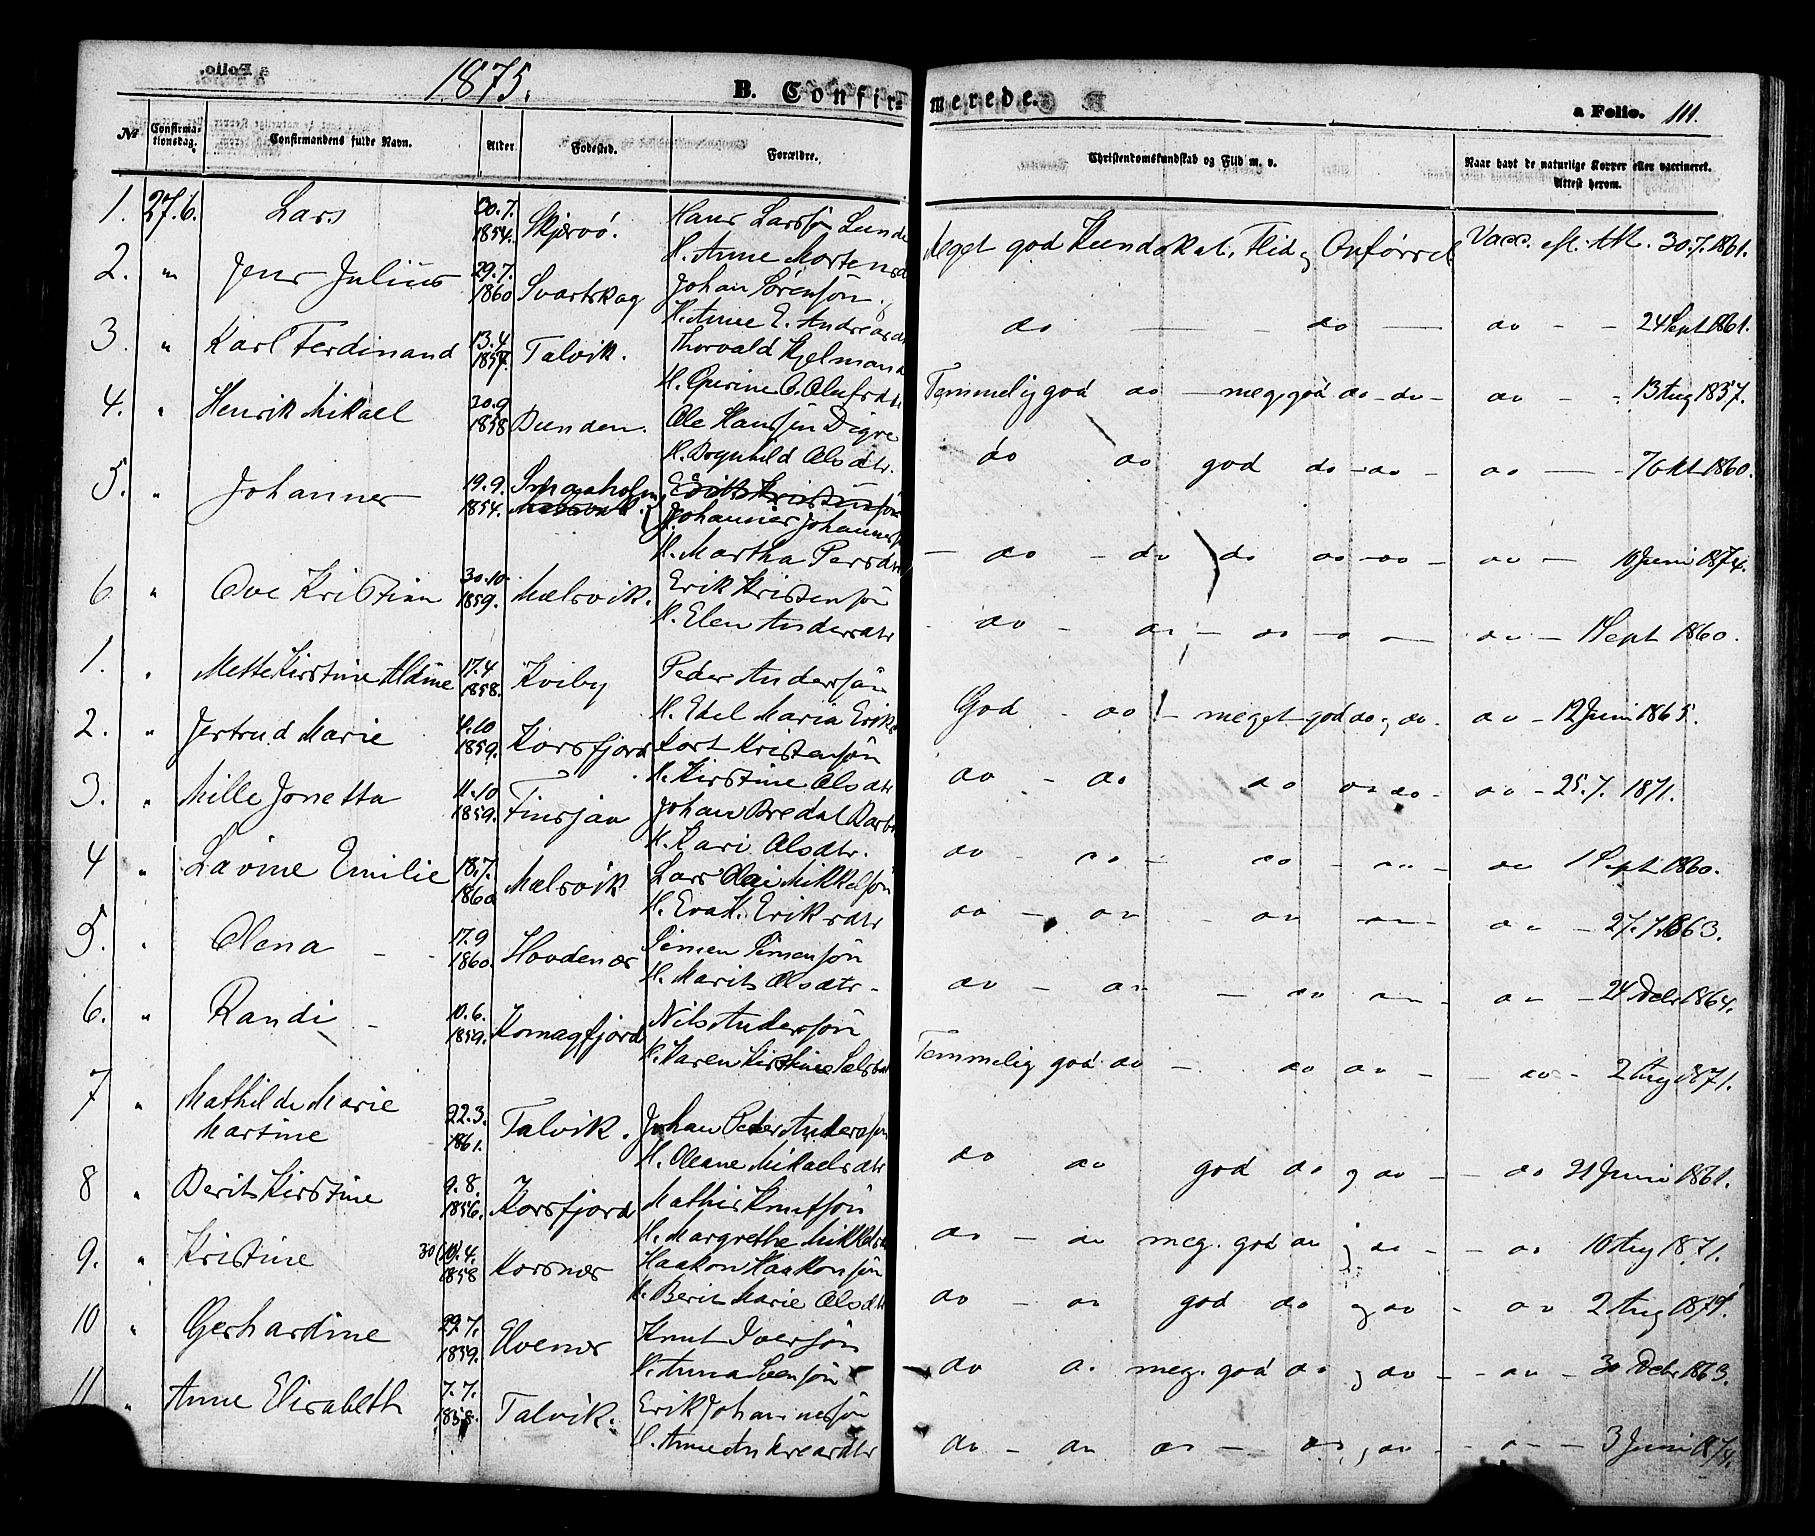 1875.
B. Confirmerede.
a Folio. 111.
№ Confirmationsdag. Confirmandens fulde Navn. Alder. Fødested. Forældre. Christendomskundskab og Flid m. v. Naar havt de naturlige Kopper eller vaccineret. Attest herom.
1. 27.6. Lars 30.7. 1854. Skjervö. Hans Larssön Lund
H. Anne Mortensd
Meget god Kundskab, Flid og Opførsel Vacc. efl. Att. 30.7.1861.
2. " Jens Julius 29.7. 1860 Svartskog Johan Sörensön
H. Anne E. Andreasd
do — do — do - - 24 Sept 1861.
3. " Karl Ferdinand 13.4 1857. Talvik. Thorvald Kjelmand
H. Gurine O. Olufsdtr
Temmelig god do - meg. god do - do - do - - 13 Aug 1857.
4. " Henrik Mikael 30.9 1858 Bunden. Ole Hanssön Digre
H. Dognhild Olsdtr.
do do god do - do - do - - 7 Okt 1860.
5. " Johannes 19.9. 1854.
Johannes Johanness
H. Martha Persdtr
- do - do do do - do - do - 10 Juni 1874.
6. " Ove Kristian 30.10. 1859. Mælsvik. Erik Kristensön
H. Elen Andersdtr
- do - do - do - do - do - 1 Sept 1860.
1. " Mette Kirstine Aldine 17.4 1858. Kviby Peder Anderssön
H. Edel Maria Eriks
God - do - meget god do og do - do - 12 Juni 1865.
2. " Jertrud Marie 11.10 1859. Korsfjord Kort Kristensön
H. Kirstine Olsdtr
do - do do do do - do - 25.7. 1871.
3. " Mille Jonetta 11.10 1859. Finsjan Johan Bredal Barb
H. Kari Olsdtr.
do - do - do - do - do 1 Sept 1860.
4 " Lavine Emilie 18.7. 1860 Mælsvik Lars Olai Mikkelsön
H. Eva H. Eriksdtr
do - do - do do - do - 27.7.1863.
5. " Olena - - 17.9 1860. Hovdenes Simen Simensön
H. Marit Olsdtr -
do - do - do do - do - 24 Debr 1864.
6. " Randi - 10.6. 1859. Komagfjord Nils Anderssön
H. Karen Kirstine
Temmelig god do - do do - - do - 2 Aug 1871.
7 " Mathilde Marie
Martine 22.3. 1861. Talvik. Johan Peder Anderssön
H. Oleane Mikaelsdtr
do do god do og do - - do 21 Juni 1861.
8 " Berit Kirstine 9.8. 1856. Korsfjord Mathis Knutsön
H. Margrethe Mikkelsd
do - do meg. god do og do - - do 10 Aug 1871.
9. " Kristine 30(10).4. 1858 Korsnes Haakon Haakonsön
H. Berit Marie Olsdtr
do - do god do og do - do 2 Aug 1871.
10 " Gerhardine 29.7. 1859. Elvenes Knut Iversön
H. Anna Svensön
do do meg. god do og do - - do - 30 Debr 1863.
11 " Anne Elisabeth 7.7. 1858. Talvik. Erik Johannessön
H. Anne Andreasdtr
do - do do - do og do - - do - 3 Juni 1874.